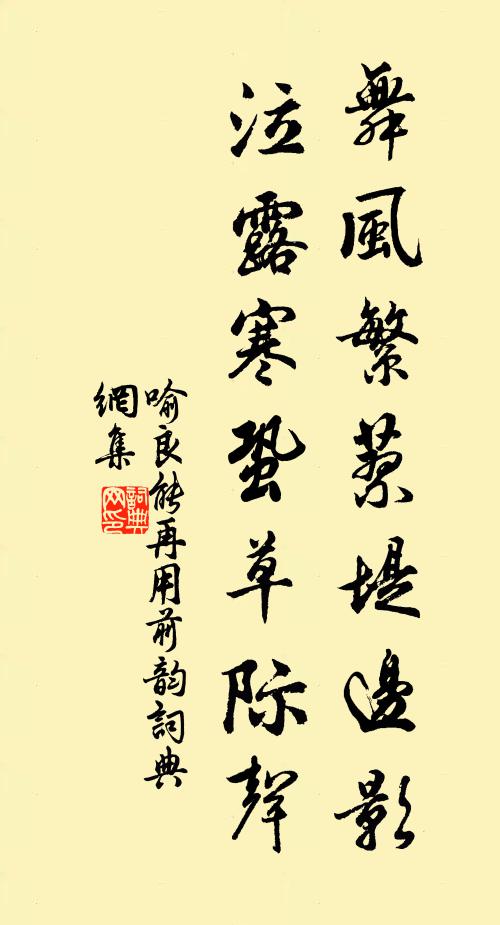 舞風繁蓼堤邊影
泣露寒蛩草際聲
喻良能再用前韵詞典
網集
詞典
网印